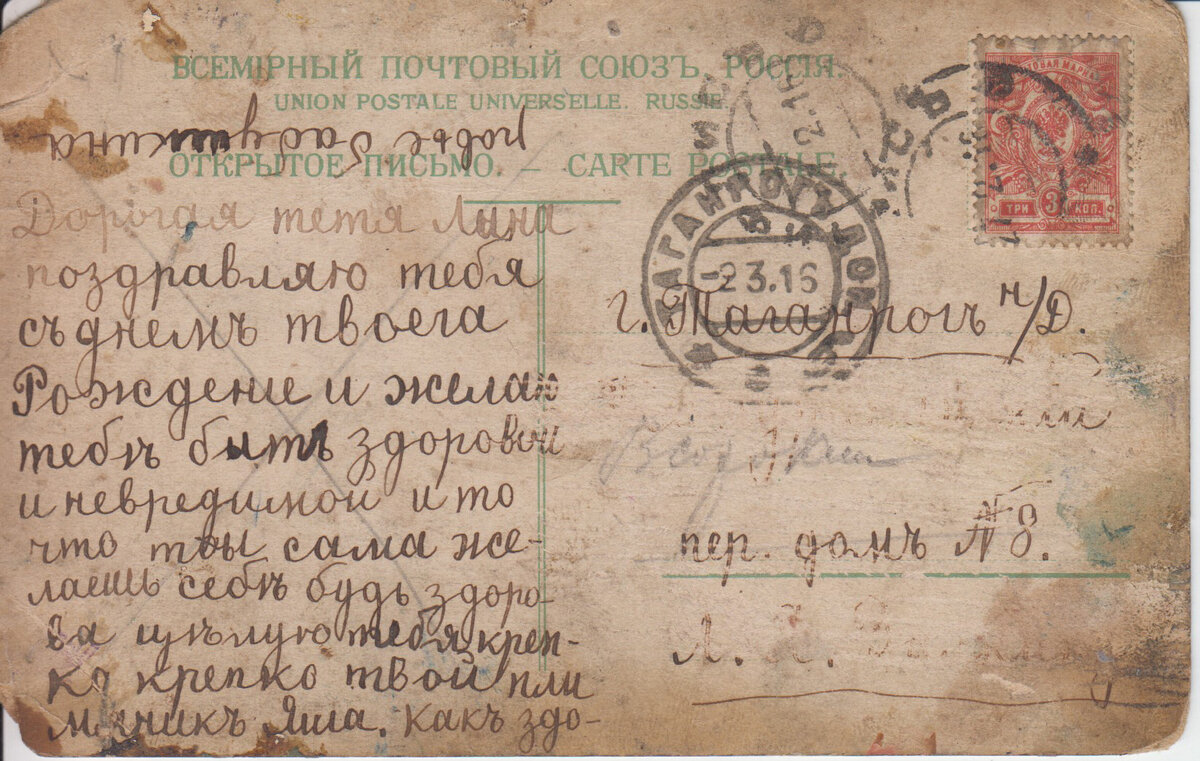 ВСЕМІРНЫЙ ПОЧТОВЫЙ СОЮЗЪ. РОССІЯ.
UNION POSTALE UNIVERSELLE. RUSSIE.
ОТКРЫТОЕ ПИСЬМО. — CARTE POSTALE.
Дорогая тетя Лина
поздравляю тебя
съ днемъ твоега
Рождение и желаю
тебѣ бить здоровой
и невредимой и то
что ты сама же-
лаешь себѣ будь здоро-
ва цѣлую тебя креп-
ко крепко твой пли
мянникъ Яша. Какъ здо-
ровье бабушкина
МАРКА
ТРИ 3 КОП.
2.16
ТАГАНРОГЪ ДОН.
-2 3.16
г. Таганрогъ н/Д.
пер. домъ № 8.